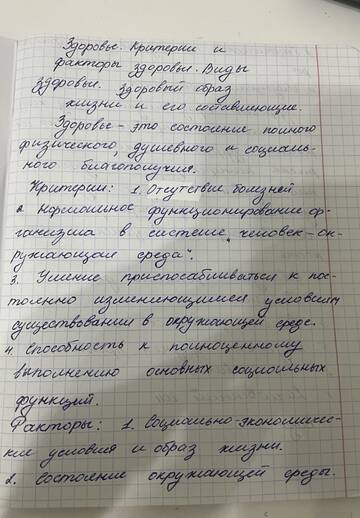 Здоровье. Критерии и
факторы здоровья. Виды
здоровья. Здоровый образ
жизни и его составляющие.
Здоровье - это состояние полного
физического, душевного и социаль-
ного благополучия.
Критерии: 1. Отсутствие болезней
2. Нормальное функционирование ор-
ганизма в системе "человек-ок-
ружающая среда".
3. Умение приспосабливаться к пос-
тоянно изменяющимся условиям
существовании в окружающей среде.
4. Способность к полноценному
выполнению основных социальных
функций.
Факторы: 1. Социально-экономичес-
кие условия и образ жизни.
2. Состояние окружающей среды.